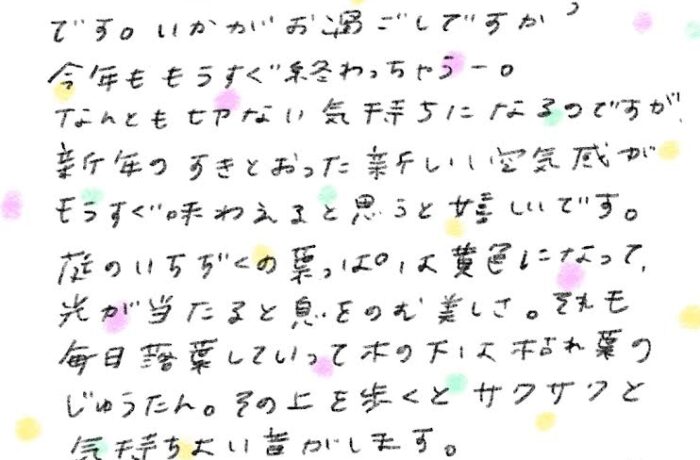 です。いかがお過ごしですか?
今年ももうすぐ終わっちゃうー。
なんとも切ない気持ちになるのですが、
新年のすきとおった新しい空気感が
もうすぐ味わえると思うと嬉しいです。
庭のいちぢくの葉っぱは黄色になって、
光が当たると息をのむ美しさ。それも
毎日落葉していって木の下は枯れ葉の
じゅうたん。その上を歩くとサクサクと
気持ちよい音がします。